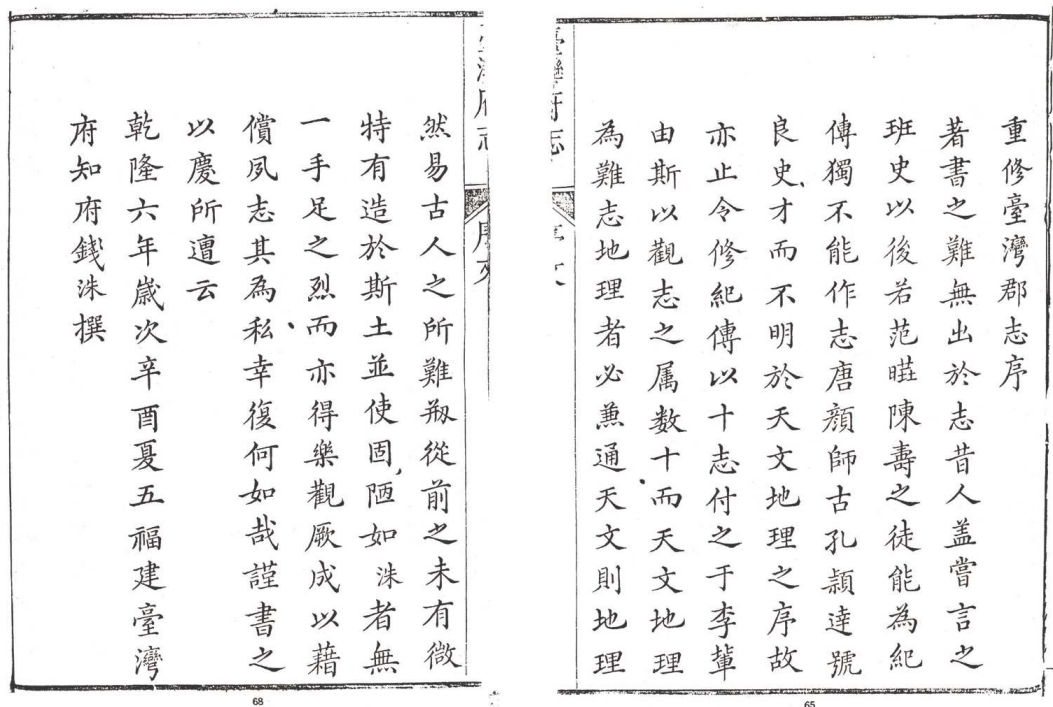 重修臺灣郡志序
著書之難無出於志昔人盖嘗言之
班史以後若范曄陳壽之徒能為紀
傳獨不能作志唐顏師古孔穎達號
良史才而不明於天文地理之序故
亦止令修紀傳以十志付之于李輩
由斯以觀志之属数十而天文地理
為難志地理者必蕙通天文則地理
臺灣府志
65
然易古人之所難剏從前之未有微
特有造於斯土並使固陋如洙者無
一手足之烈而亦得樂觀厥成以藉
償夙志其為私幸復何如哉謹書之
以慶所遭云
乾隆六年歲次辛酉夏五福建臺灣
府知府錢洙撰
68